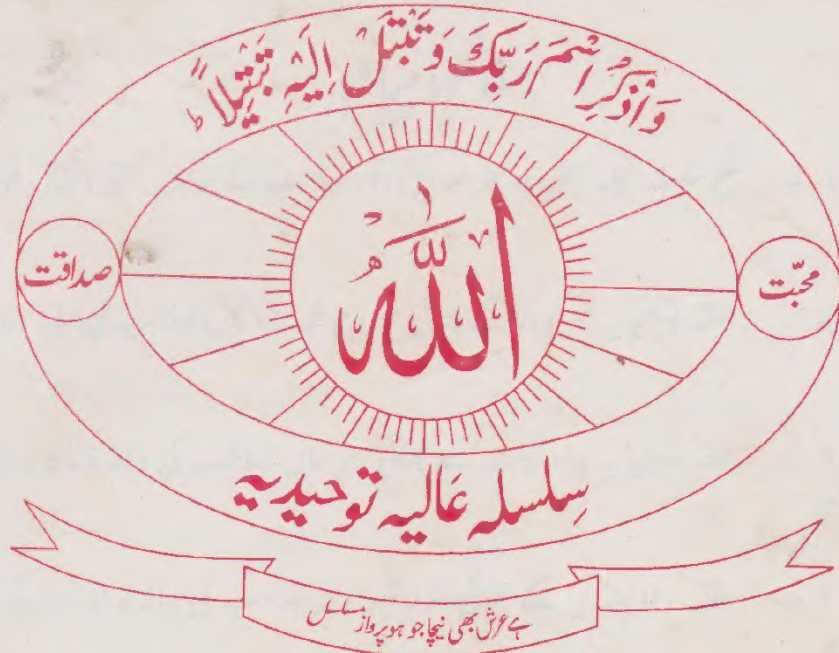 وَاذْكُرِ اسْمَ رَبِّكَ وَتَبَتَّلْ اِلَيْهِ تَبْتِيْلًا ط
محبّت
اللّٰه
صداقت
سِلسلہ عَالیہ توحیدیہ
ہے عرش بھی نیچا جو ہو پرواز مسلسل